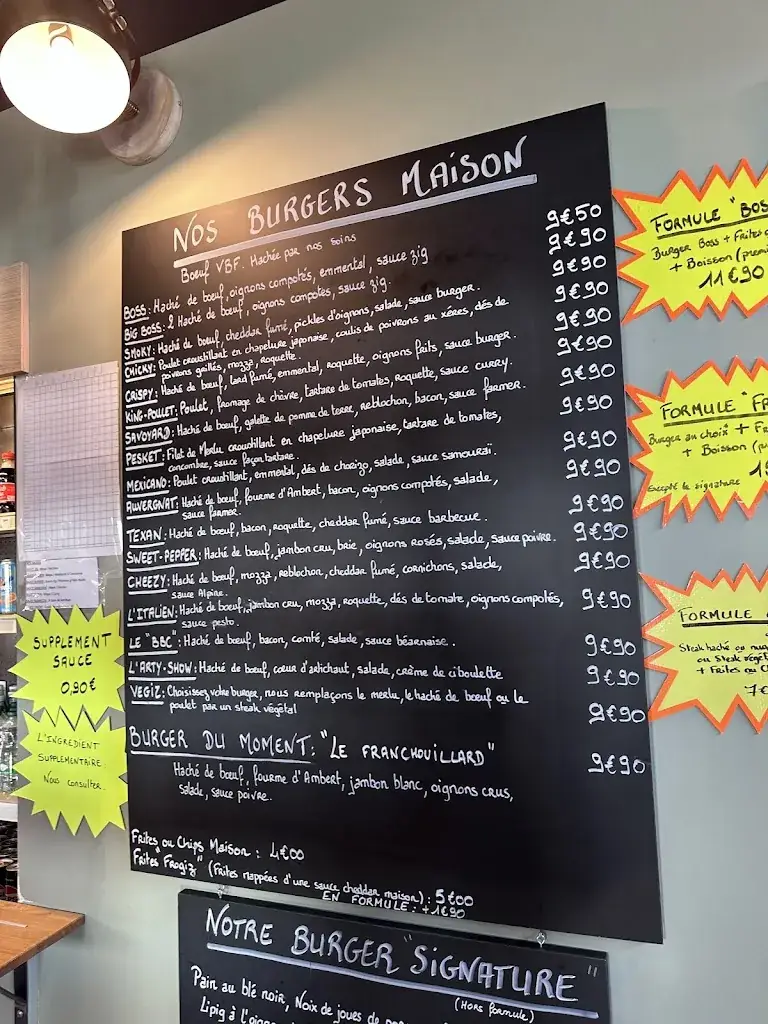 NOS BURGERS MAISON
Boeuf VBF. Hachée par nos soins
BOSS: Haché de boeuf, oignons compotés, emmental, sauce zig 9€50
BIG BOSS: 2 Haché de boeuf, oignons compotés, sauce zig. 9€90
SMOKY: Haché de boeuf, cheddar fumé, pickles d'oignons, salade, sauce burger. 9€90
CHICKY: Poulet croustillant en chapelure japonaise, coulis de poivrons au xérès, dés de
poivrons grillés, mozza, roquette. 9€90
CRISPY: Haché de boeuf, lard fumé, emmental, roquette, oignons frits, sauce burger. 9€90
KING-POULET: Poulet, fromage de chèvre, tartare de tomates, roquette, sauce curry. 9€90
SAVOYARD: Haché de boeuf, galette de pomme de terre, reblochon, bacon, sauce farmer. 9€90
PESKET: Filet de Merlu croustillant en chapelure japonaise, tartare de tomates,
concombre, sauce façon tartare. 9€90
MEXICANO: Poulet croustillant, emmental, dés de chorizo, salade, sauce samouraï. 9€90
AUVERGNAT: Haché de boeuf, fourme d'Ambert, bacon, oignons compotés, salade,
sauce farmer. 9€90
TEXAN: Haché de boeuf, bacon, roquette, cheddar fumé, sauce barbecue. 9€90
SWEET-PEPPER: Haché de boeuf, jambon cru, brie, oignons rosés, salade, sauce poivre. 9€90
CHEEZY: Haché de boeuf, mozza, reblochon, cheddar fumé, cornichons, salade,
sauce Alpine. 9€90
L'ITALIEN: Haché de boeuf, jambon cru, mozza, roquette, dés de tomate, oignons compotés,
sauce pesto. 9€90
LE "BBC": Haché de boeuf, bacon, comté, salade, sauce béarnaise. 9€90
L'ARTY-SHOW: Haché de boeuf, coeur d'artichaut, salade, crème de ciboulette 9€90
VEGIZ: Choisissez votre burger, nous remplaçons le merlu, le haché de boeuf ou le
poulet par un steak végétal 9€90
BURGER DU MOMENT: "LE FRANCHOUILLARD" 9€90
Haché de boeuf, fourme d'Ambert, jambon blanc, oignons crus,
salade, sauce poivre.
Frites ou Chips Maison : 4€00
Frites "Frogiz" (Frites nappées d'une sauce cheddar maison) : 5€00
EN FORMULE : +1€90
NOTRE BURGER "SIGNATURE"
(HORS formule)
Pain au blé noir, Noix de joues de
Lipig à l'
SUPPLEMENT
SAUCE
0,90€
L'INGREDIENT
SUPPLEMENTAIRE
Nous consulter.
FORMULE "BOS
Burger Boss + Frites
+ Boisson
11€90
FORMULE "FR
Burger au choix + Fr
+ Boisson
Excepté le signature
FORMULE
Steak haché ou
ou Steak
+ Frites ou
7€